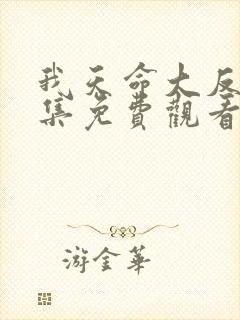 我天命大反
集免費觀看
游金華